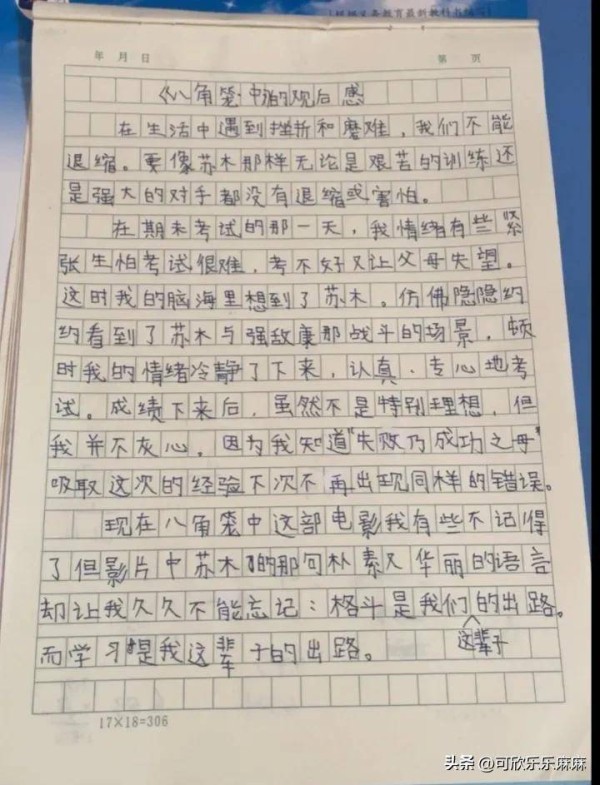 年 月 日 第 页
《八角笼中》的观后感
在生活中遇到挫折和磨难，我们不能
退缩。要像苏木那样无论是艰苦的训练还
是强大的对手都没有退缩或害怕。
在期末考试的那一天，我情绪有些紧
张生怕考试很难，考不好又让父母失望。
这时我的脑海里想到了苏木。仿佛隐隐约
约看到了苏木与强敌康那战斗的场景，顿
时我的情绪冷静了下来，认真、专心地考
试。成绩下来后，虽然不是特别理想，但
我并不灰心。因为我知道"失败乃成功之母"
吸取这次的经验下次不再出现同样的错误。
现在八角笼中这部电影我有些不记得
了但影片中苏木的那句朴素又华丽的语言
却让我久久不能忘记：格斗是我们的出路。
这辈子
而学习是我这辈子的出路。
17×18=306
头条 @可欣乐乐麻麻